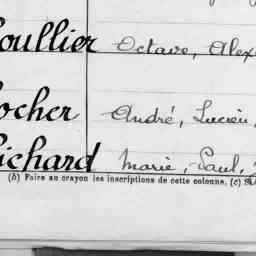 oullier Octave, Alex
ocher André, Lucien,
ichard Marie, Paul,
(b) Faire au crayon les inscriptions de cette colonne. (c)